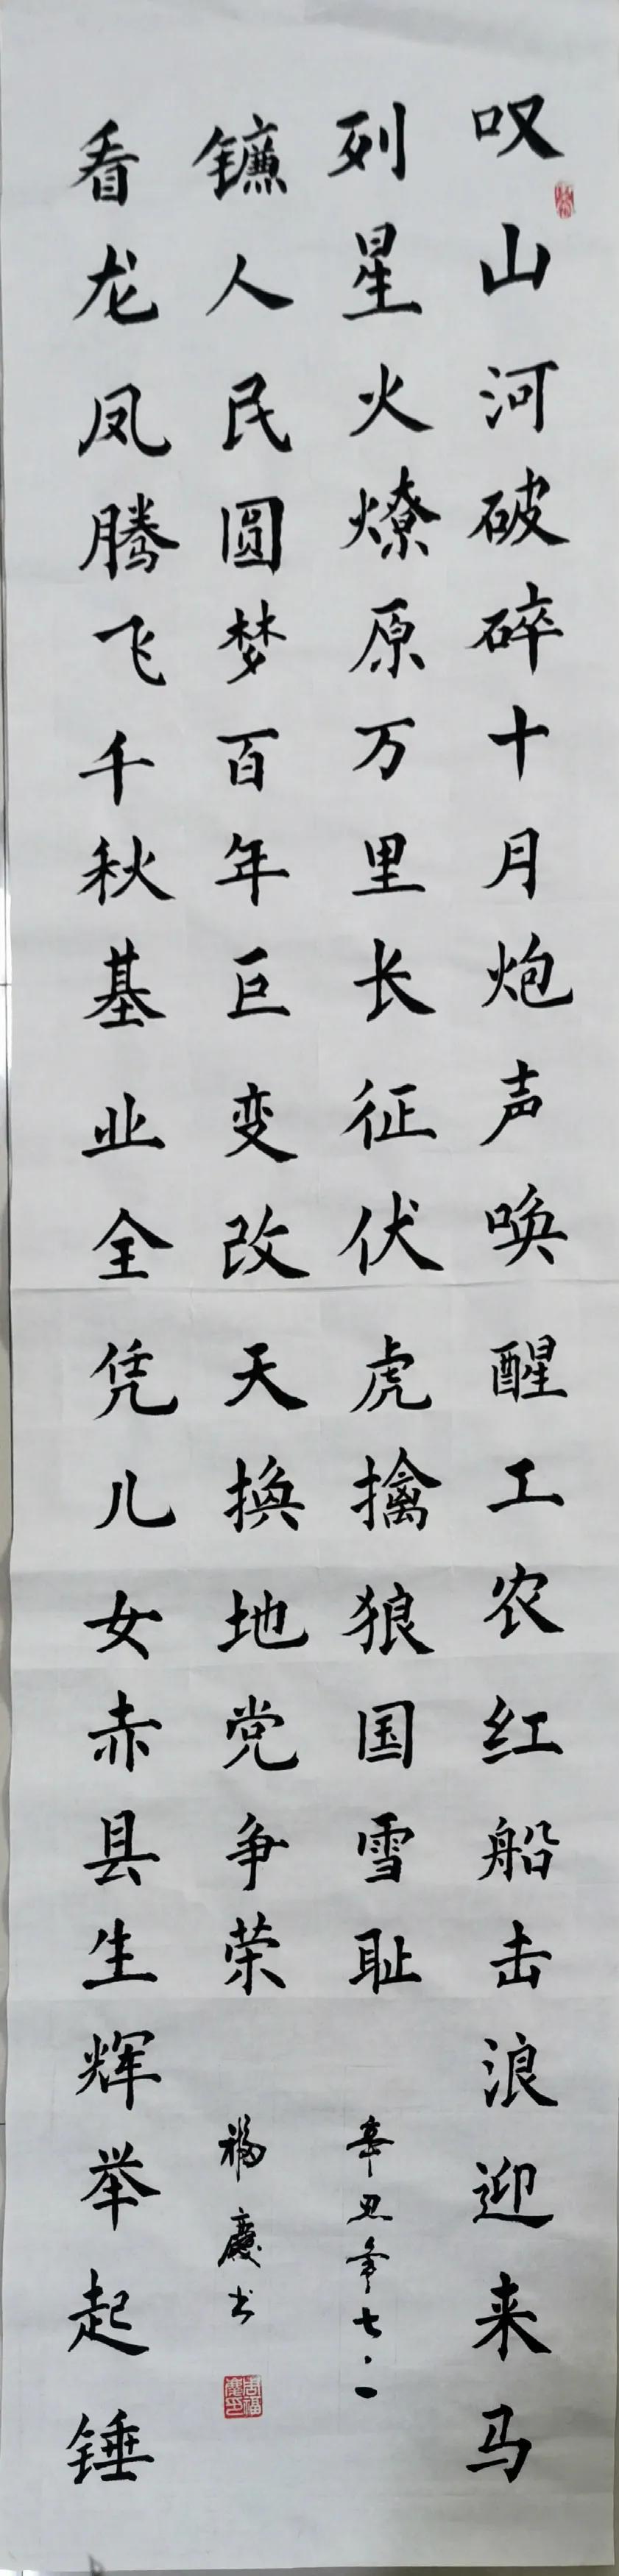 叹山河破碎十月炮声唤醒工农红船击浪迎来马
列星火燎原万里长征伏虎擒狼国雪耻
看龙凤腾飞千秋基业全凭儿女赤县生辉举起锤
镰人民圆梦百年巨变改天换地党争荣
辛丑年七·一
福庆书
周福庆印